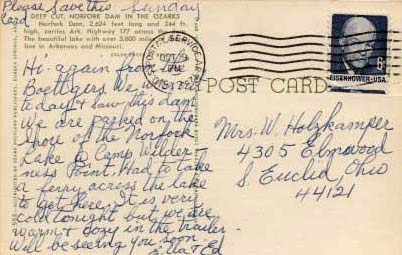 Please Save this Sunday
Card
DEEP CUT, NORFORK DAM IN THE OZARKS
Norfork Dam, 2,624 feet long and 244 ft.
high, carries Ark. Highway 177 across the
The beautiful lake with over 5,000 miles
line in Arkansas and Missouri.
Hi again from the
Boettgers. We
today & saw this dam
We are parked on the
shore of the Norfork
Lake @ Camp Wilder-
ness Point. Had to take
a ferry across the lake
to get here. It is very
cold tonight but we are
warm & cozy in the trailer
Will be seeing you soon
Ella & Ed
POSTAL SERVICE
POST CARD
EISENHOWER·USA
8c
Mrs. W. Holzkamper
4305 Elmwood
S. Euclid Ohio
44121